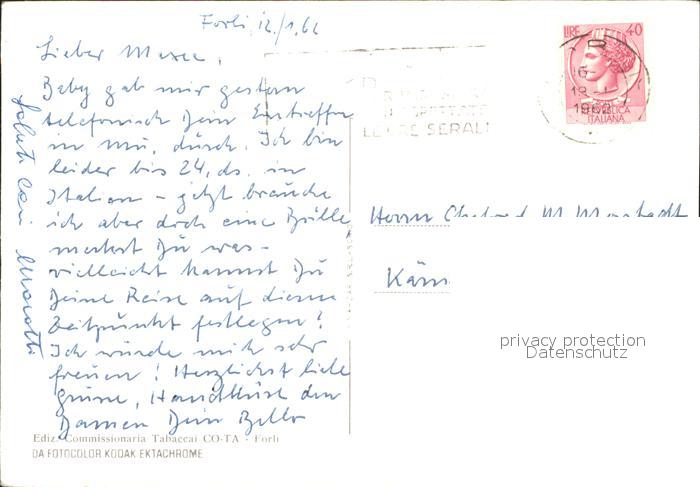 Forli, 12./1.62
Lieber
Baby gab mir gestern
telefonisch Dein Eintreffen
in Mü. durch. Ich bin
leider bis 24. ds. in
Italien – jetzt brauche
ich aber doch eine Brille
merkst Du was –
vielleicht kannst Du
Deine Reise auf diesen
Zeitpunkt festlegen!
Ich würde mich sehr
freuen! Herzlichst liebe
Grüsse, Handküsse den
Damen Dein
Saluti cari
LIRE 40
16-
1962
ITALIANA
SERALI
Herrn
Kärn
privacy protection
Datenschutz
Ediz. Commissionaria Tabaccai CO-TA - Forlì
DA FOTOCOLOR KODAK EKTACHROME